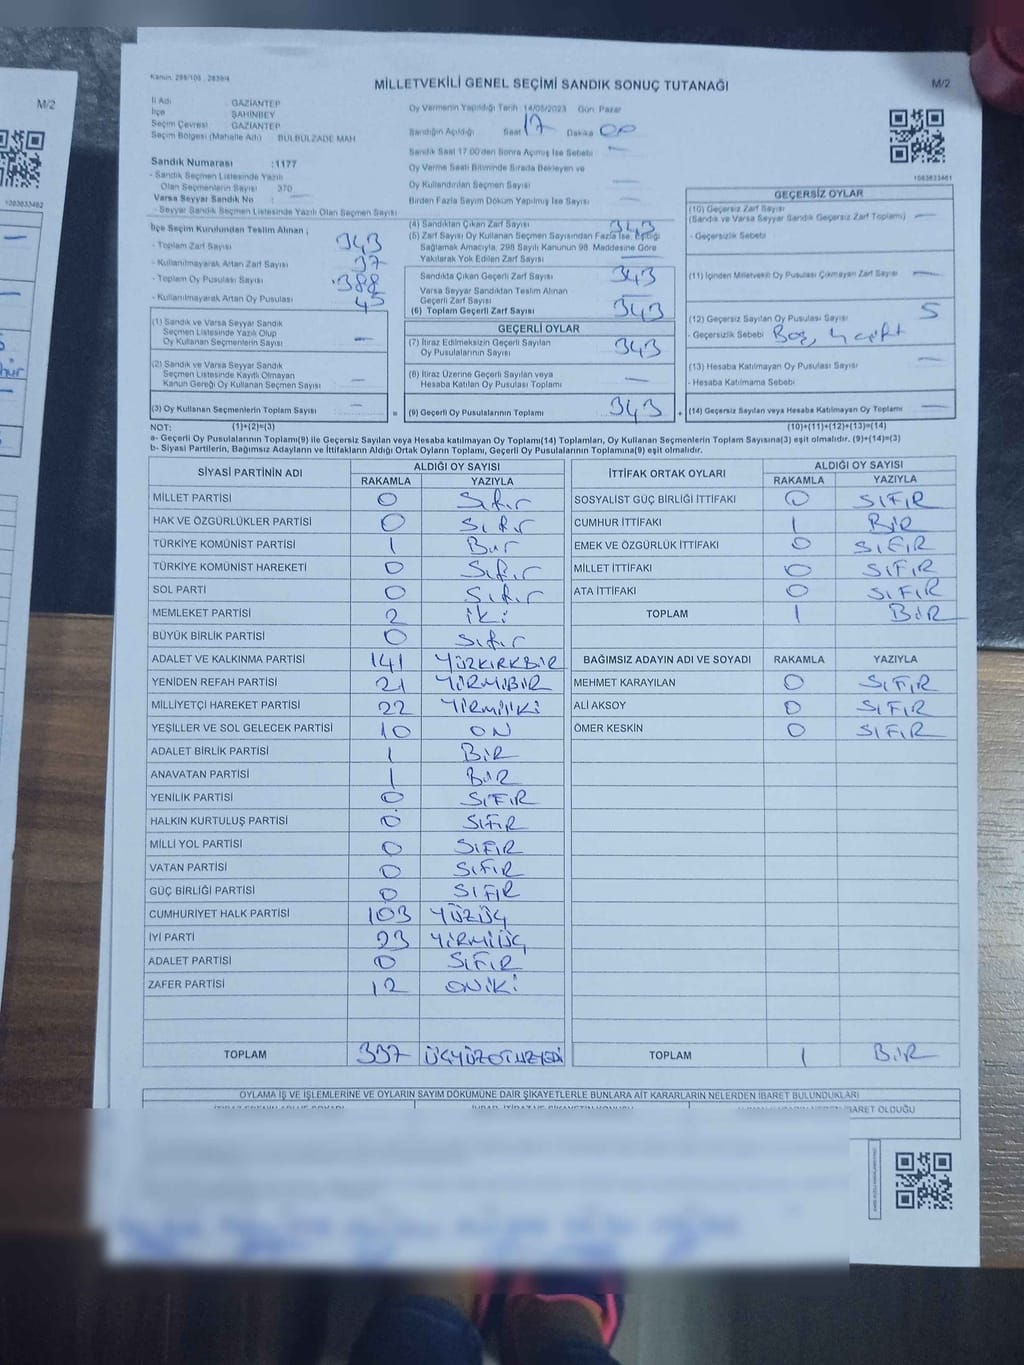 Kanun, 298/105 , 2839/4
MİLLETVEKİLİ GENEL SEÇİMİ SANDIK SONUÇ TUTANAĞI
M/2
M/2
İl Adı : GAZİANTEP
İlçe : ŞAHİNBEY
Seçim Çevresi : GAZİANTEP
Seçim Bölgesi (Mahalle Adı) : BÜLBÜLZADE MAH
Sandık Numarası :1177
- Sandık Seçmen Listesinde Yazılı
Olan Seçmenlerin Sayısı : 370
Varsa Seyyar Sandık No : —
- Seyyar Sandık Seçmen Listesinde Yazılı Olan Seçmen Sayısı
İlçe Seçim Kurulundan Teslim Alınan ;
- Toplam Zarf Sayısı 343
- Kullanılmayarak Artan Zarf Sayısı 37
- Toplam Oy Pusulası Sayısı 388
- Kullanılmayarak Artan Oy Pusulası 45
(1) Sandık ve Varsa Seyyar Sandık
Seçmen Listesinde Yazılı Olup
Oy Kullanan Seçmenlerin Sayısı —
(2) Sandık ve Varsa Seyyar Sandık
Seçmen Listesinde Kayıtlı Olmayan
Kanun Gereği Oy Kullanan Seçmen Sayısı —
(3) Oy Kullanan Seçmenlerin Toplam Sayısı — =
Oy Vermenin Yapıldığı Tarih : 14/05/2023 Gün: Pazar
Sandığın Açıldığı Saat 17 Dakika 00
Sandık Saat 17.00'den Sonra Açılmış İse Sebebi : —
Oy Verme Saati Bitiminde Sırada Bekleyen ve
Oy Kullandırılan Seçmen Sayısı : —
Birden Fazla Sayım Döküm Yapılmış İse Sayısı : —
(4) Sandıktan Çıkan Zarf Sayısı 343
(5) Zarf Sayısı Oy Kullanan Seçmen Sayısından Fazla İse, Eşitliği
Sağlamak Amacıyla, 298 Sayılı Kanunun 98. Maddesine Göre
Yakılarak Yok Edilen Zarf Sayısı —
Sandıkta Çıkan Geçerli Zarf Sayısı 343
Varsa Seyyar Sandıktan Teslim Alınan
Geçerli Zarf Sayısı —
(6) Toplam Geçerli Zarf Sayısı 343
GEÇERLİ OYLAR
(7) İtiraz Edilmeksizin Geçerli Sayılan
Oy Pusulalarının Sayısı 343
(8) İtiraz Üzerine Geçerli Sayılan veya
Hesaba Katılan Oy Pusulası Toplamı —
(9) Geçerli Oy Pusulalarının Toplamı 343 +
1083833461
1083833462
GEÇERSİZ OYLAR
(10) Geçersiz Zarf Sayısı
(Sandık ve Varsa Seyyar Sandık Geçersiz Zarf Toplamı) —
- Geçersizlik Sebebi
(11) İçinden Milletvekili Oy Pusulası Çıkmayan Zarf Sayısı —
(12) Geçersiz Sayılan Oy Pusulası Sayısı 5
- Geçersizlik Sebebi Boş, 4 çift
(13) Hesaba Katılmayan Oy Pusulası Sayısı —
- Hesaba Katılmama Sebebi
(14) Geçersiz Sayılan veya Hesaba Katılmayan Oy Toplamı —
NOT: (1)+(2)=(3) (10)+(11)+(12)+(13)=(14)
a- Geçerli Oy Pusulalarının Toplamı(9) ile Geçersiz Sayılan veya Hesaba katılmayan Oy Toplamı(14) Toplamları, Oy Kullanan Seçmenlerin Toplam Sayısına(3) eşit olmalıdır. (9)+(14)=(3)
b- Siyasi Partilerin, Bağımsız Adayların ve İttifakların Aldığı Ortak Oyların Toplamı, Geçerli Oy Pusulalarının Toplamına(9) eşit olmalıdır.
SİYASİ PARTİNİN ADI ALDIĞI OY SAYISI
RAKAMLA YAZIYLA
MİLLET PARTİSİ 0 Sıfır
HAK VE ÖZGÜRLÜKLER PARTİSİ 0 Sıfır
TÜRKİYE KOMÜNİST PARTİSİ 1 Bir
TÜRKİYE KOMÜNİST HAREKETİ 0 Sıfır
SOL PARTİ 0 Sıfır
MEMLEKET PARTİSİ 2 iki
BÜYÜK BİRLİK PARTİSİ 0 Sıfır
ADALET VE KALKINMA PARTİSİ 141 YÜZKIRKBİR
YENİDEN REFAH PARTİSİ 21 YİRMİBİR
MİLLİYETÇİ HAREKET PARTİSİ 22 YİRMİİKİ
YEŞİLLER VE SOL GELECEK PARTİSİ 10 ON
ADALET BİRLİK PARTİSİ 1 BİR
ANAVATAN PARTİSİ 1 BİR
YENİLİK PARTİSİ 0 SIFIR
HALKIN KURTULUŞ PARTİSİ 0 SIFIR
MİLLİ YOL PARTİSİ 0 SIFIR
VATAN PARTİSİ 0 SIFIR
GÜÇ BİRLİĞİ PARTİSİ 0 SIFIR
CUMHURİYET HALK PARTİSİ 103 YÜZÜÇ
İYİ PARTİ 23 YİRMİÜÇ
ADALET PARTİSİ 0 SIFIR
ZAFER PARTİSİ 12 ONİKİ
TOPLAM 337 ÜÇYÜZOTUZYEDİ
İTTİFAK ORTAK OYLARI ALDIĞI OY SAYISI
RAKAMLA YAZIYLA
SOSYALİST GÜÇ BİRLİĞİ İTTİFAKI 0 SIFIR
CUMHUR İTTİFAKI 1 BİR
EMEK VE ÖZGÜRLÜK İTTİFAKI 0 SIFIR
MİLLET İTTİFAKI 0 SIFIR
ATA İTTİFAKI 0 SIFIR
TOPLAM 1 BİR
BAĞIMSIZ ADAYIN ADI VE SOYADI RAKAMLA YAZIYLA
MEHMET KARAYILAN 0 SIFIR
ALİ AKSOY 0 SIFIR
ÖMER KESKİN 0 SIFIR
TOPLAM 1 BİR
OYLAMA İŞ VE İŞLEMLERİNE VE OYLARIN SAYIM DÖKÜMÜNE DAİR ŞİKAYETLERLE BUNLARA AİT KARARLARIN NELERDEN İBARET BULUNDUKLARI
İBARET OLDUĞU